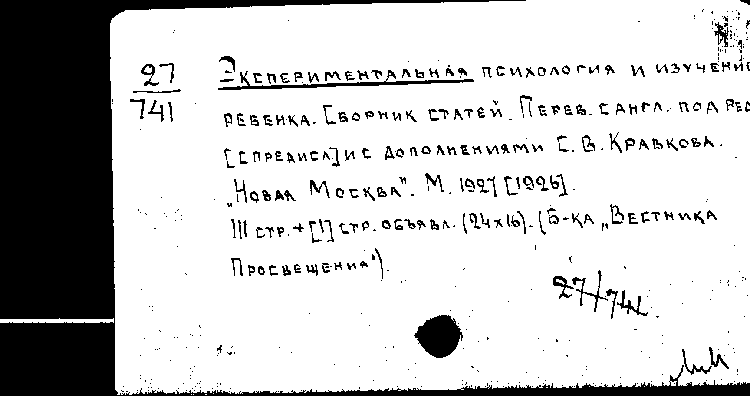 27
741
Экспериментальная психология и изучение
ребенка. [Сборник статей. Перев. с англ. под ред.
[с предисл.] и с дополнениями С. В. Кравкова.
„Новая Москва". М. 1927 [1926].
111 стр. + [1] стр. объявл. (24х16). (Б-ка „Вестника
Просвещения").
27/741